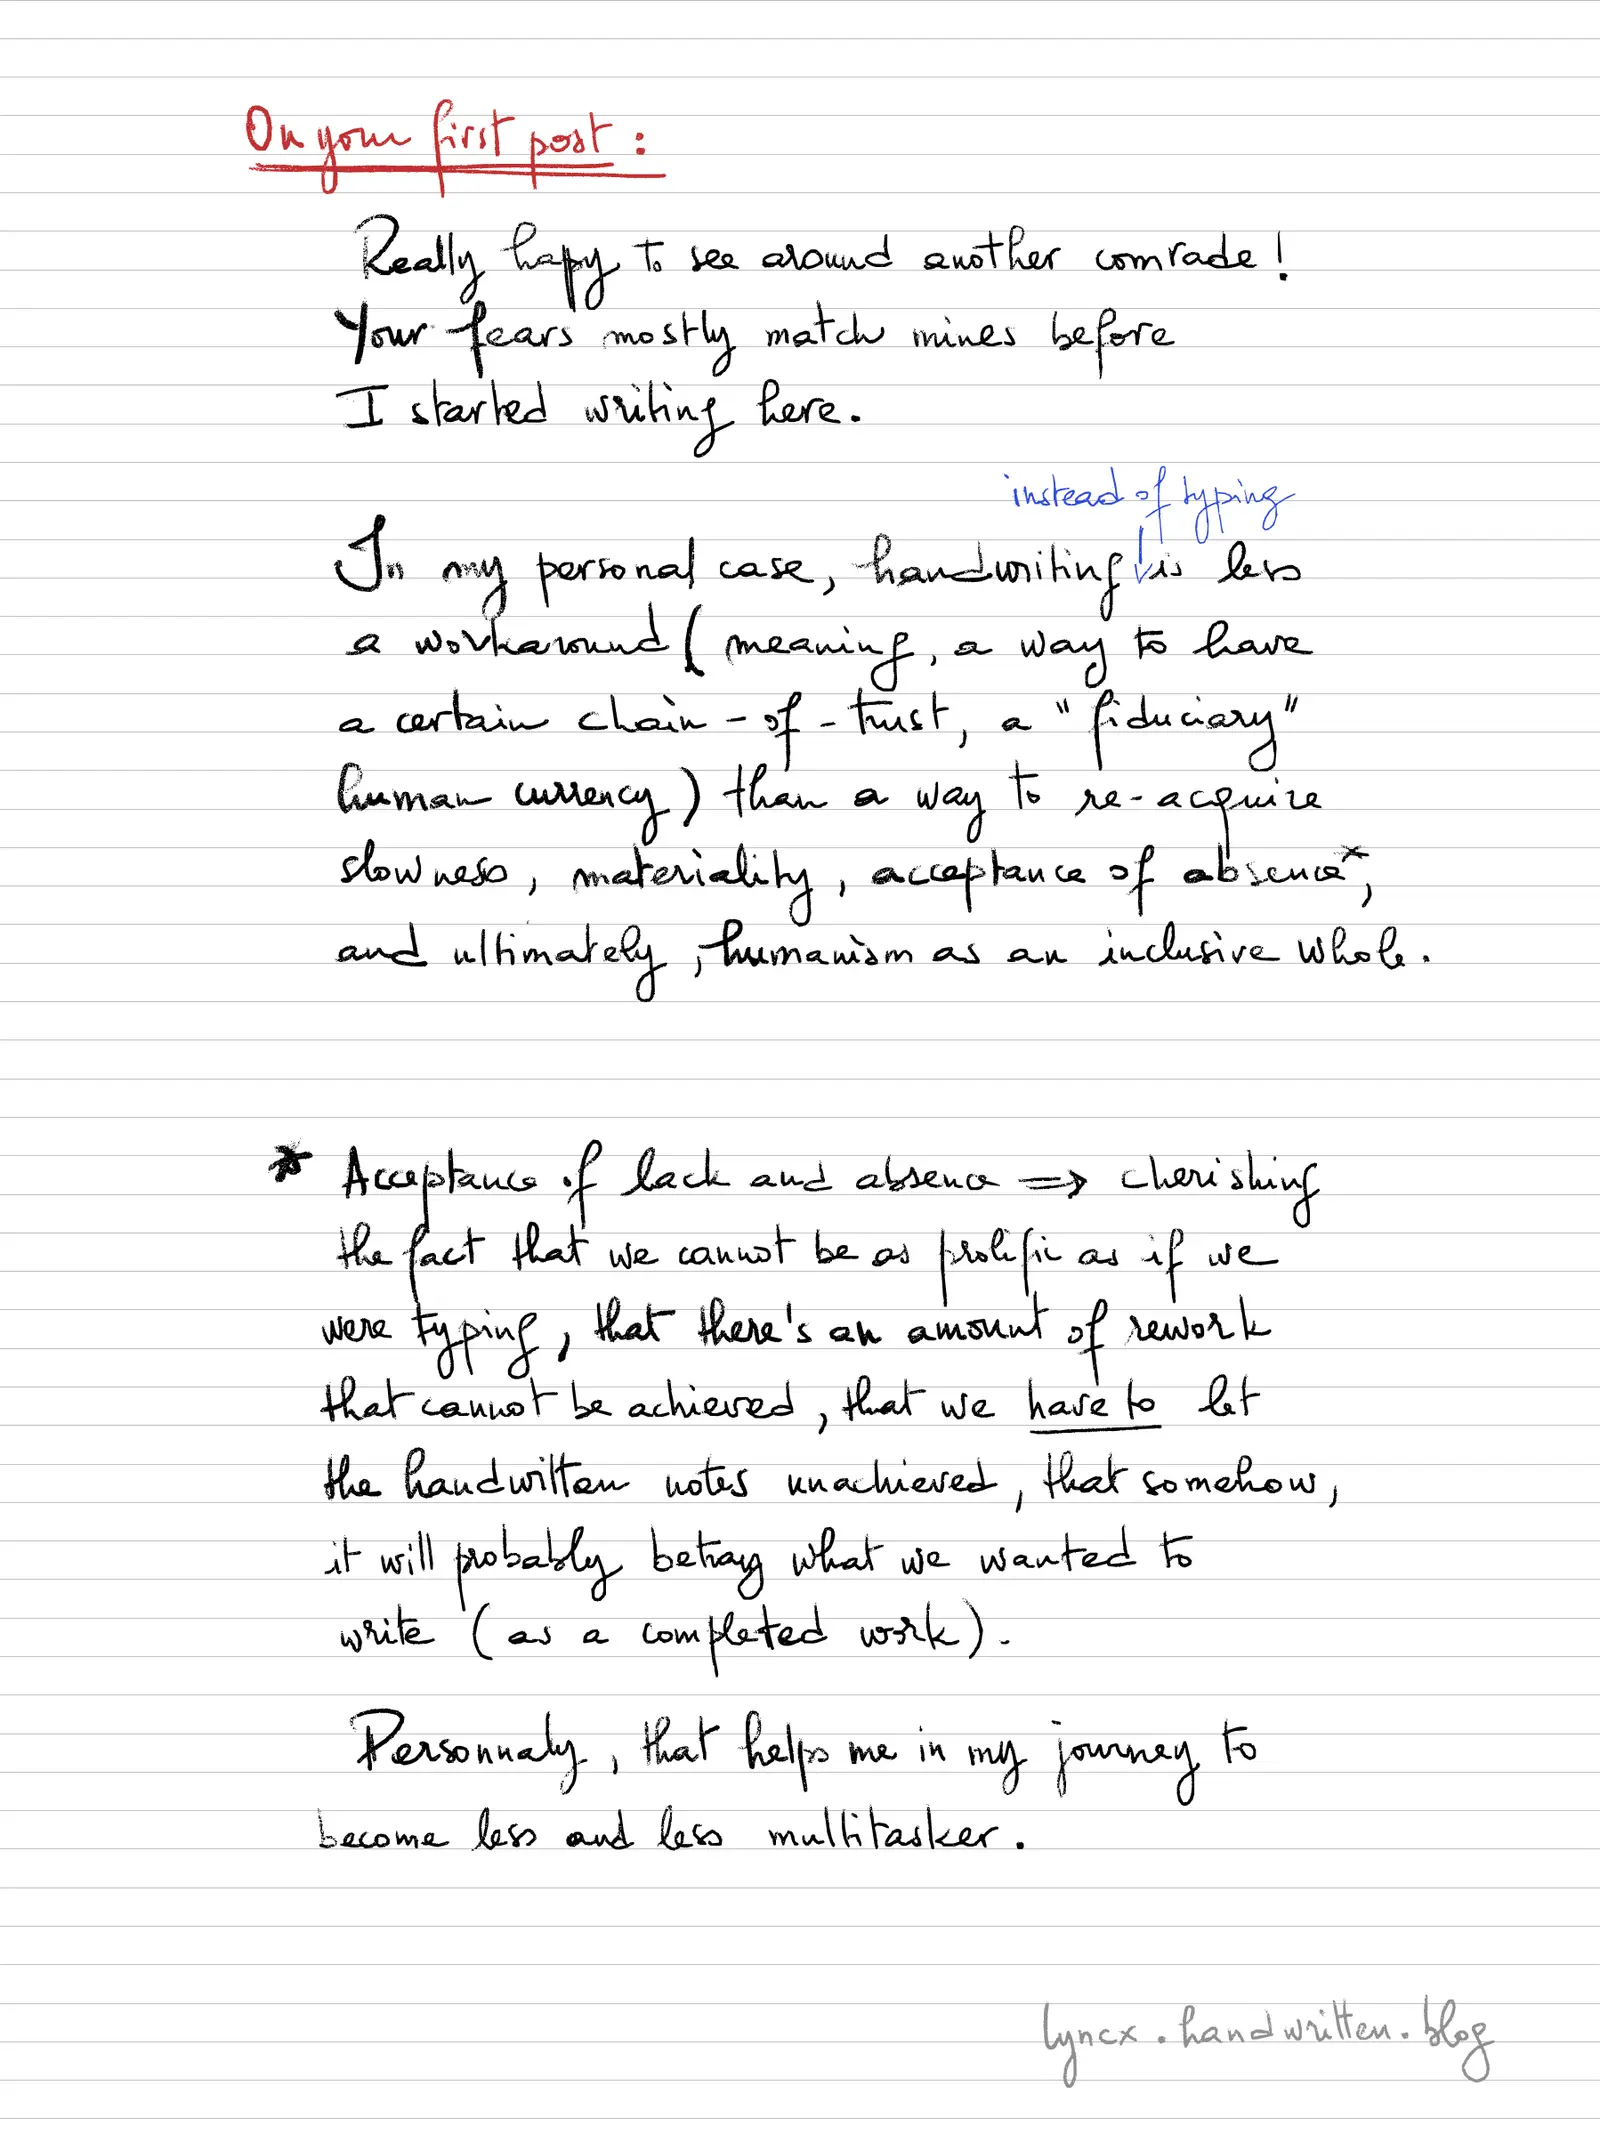 On your first post :
Really hapy to see around another comrade !
Your fears mostly match mines before
I started writing here.
instead of typing
In my personal case, handwriting is less
a workaround ( meaning, a way to have
a certain chain-of-trust, a "fiduciary"
human currency ) than a way to re-acquire
slowness, materiality, acceptance of absence*,
and ultimately, humanism as an inclusive whole.
* Acceptance of lack and absence => cherishing
the fact that we cannot be as prolific as if we
were typing, that there's an amount of rework
that cannot be achieved, that we have to let
the handwitten notes unachieved, that somehow,
it will probably betray what we wanted to
write ( as a completed work ).
Personnaly, that helps me in my journey to
become less and less multitasker.
lyncx.handwritten.blog